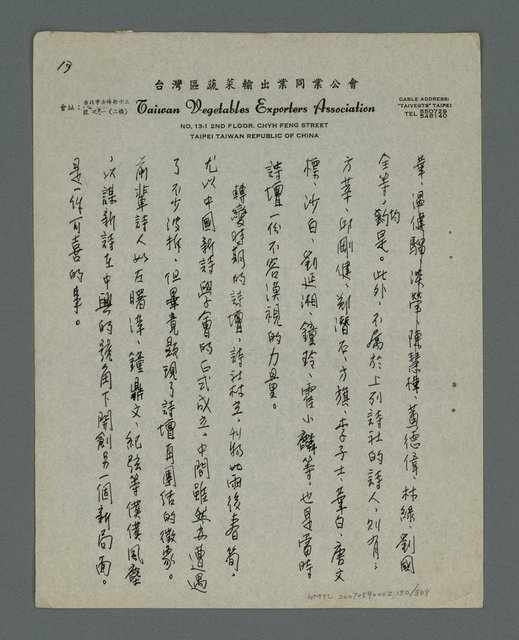 13
台灣區蔬菜輸出業同業公會
會址：台北市赤峰街十三號之一（二樓）
Taiwan Vegetables Exporters Association
CABLE ADDRESS:
"TAIVEGTS" TAIPEI
TEL 550728
548140
NO. 13-1 2ND FLOOR. CHYH FENG STREET
TAIPEI TAIWAN REPUBLIC OF CHINA
華、溫健騮、淡瑩、陳慧樺、黃德偉、林綠、劉國
全等，均是。此外，不屬於上列詩社的詩人，則有：
方莘、邱剛健、剜潛石、方旗、李子士、華白、唐文
標、沙白、劉延湘、鐘玲、霍小麟等，也是當時
詩壇一份不容漠視的力量。
轉變時期的詩壇，詩社林立，刊物如雨後春筍。
尤以中國新詩學會的正式成立。中間雖然亦遭遇
了不少波折，但畢竟顯現了詩壇再團結的徵象。
前輩詩人如左曙萍、鍾鼎文、紀弦等僕僕風塵
，以謀新詩在中興的號角下開創另一個新局面。
是一件可喜的事。
NMTL 20070590002, 150/509